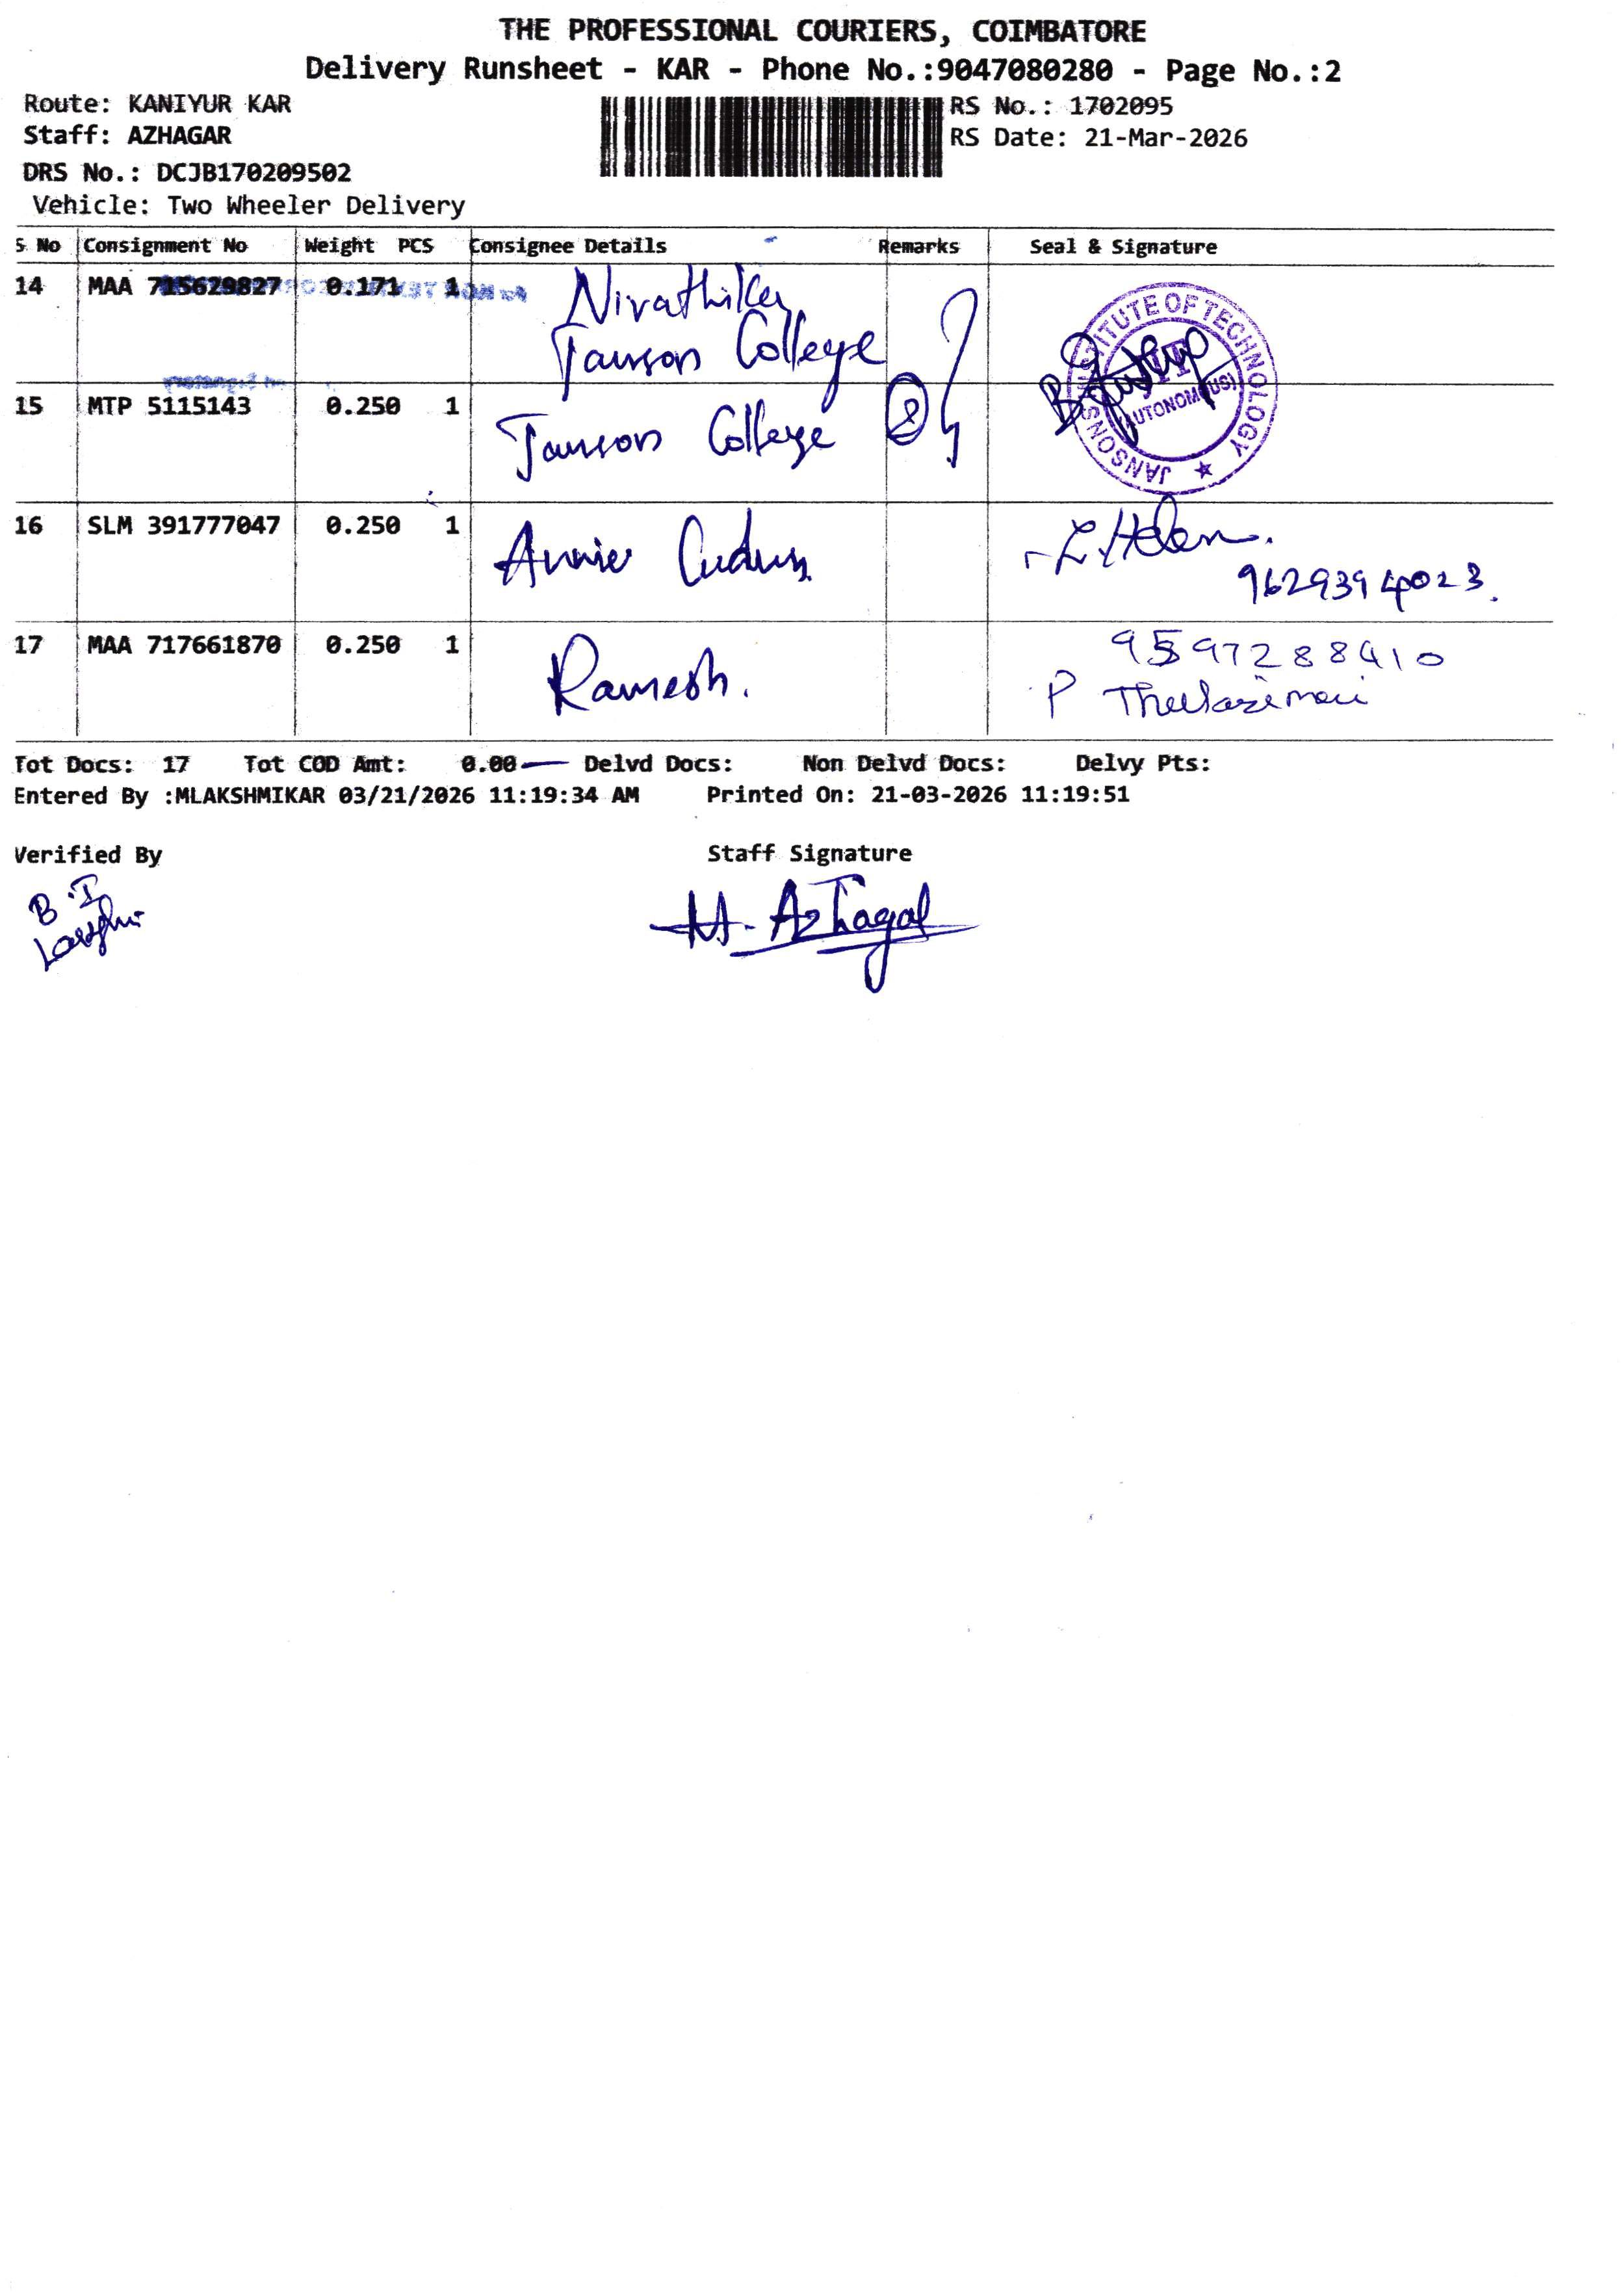 THE PROFESSIONAL COURIERS, COIMBATORE
Delivery Runsheet - KAR - Phone No.:9047080280 - Page No.:2
Route: KANIYUR KAR
RS No.: 1702095
Staff: AZHAGAR
RS Date: 21-Mar-2026
DRS No.: DCJB170209502
Vehicle: Two Wheeler Delivery
S No Consignment No Weight PCS Consignee Details Remarks Seal & Signature
14 MAA 715629827 0.171 1 Nivathika
Janson College
JANSONS INSTITUTE OF TECHNOLOGY
JIT
(AUTONOMOUS)
15 MTP 5115143 0.250 1 Janson College 2
16 SLM 391777047 0.250 1 Annie L Helen.
9629394023.
17 MAA 717661870 0.250 1 Ramesh. 9597288410
P
Tot Docs: 17 Tot COD Amt: 0.00 Delvd Docs: Non Delvd Docs: Delvy Pts:
Entered By :MLAKSHMIKAR 03/21/2026 11:19:34 AM Printed On: 21-03-2026 11:19:51
Verified By Staff Signature
B.I
M. Azhagar